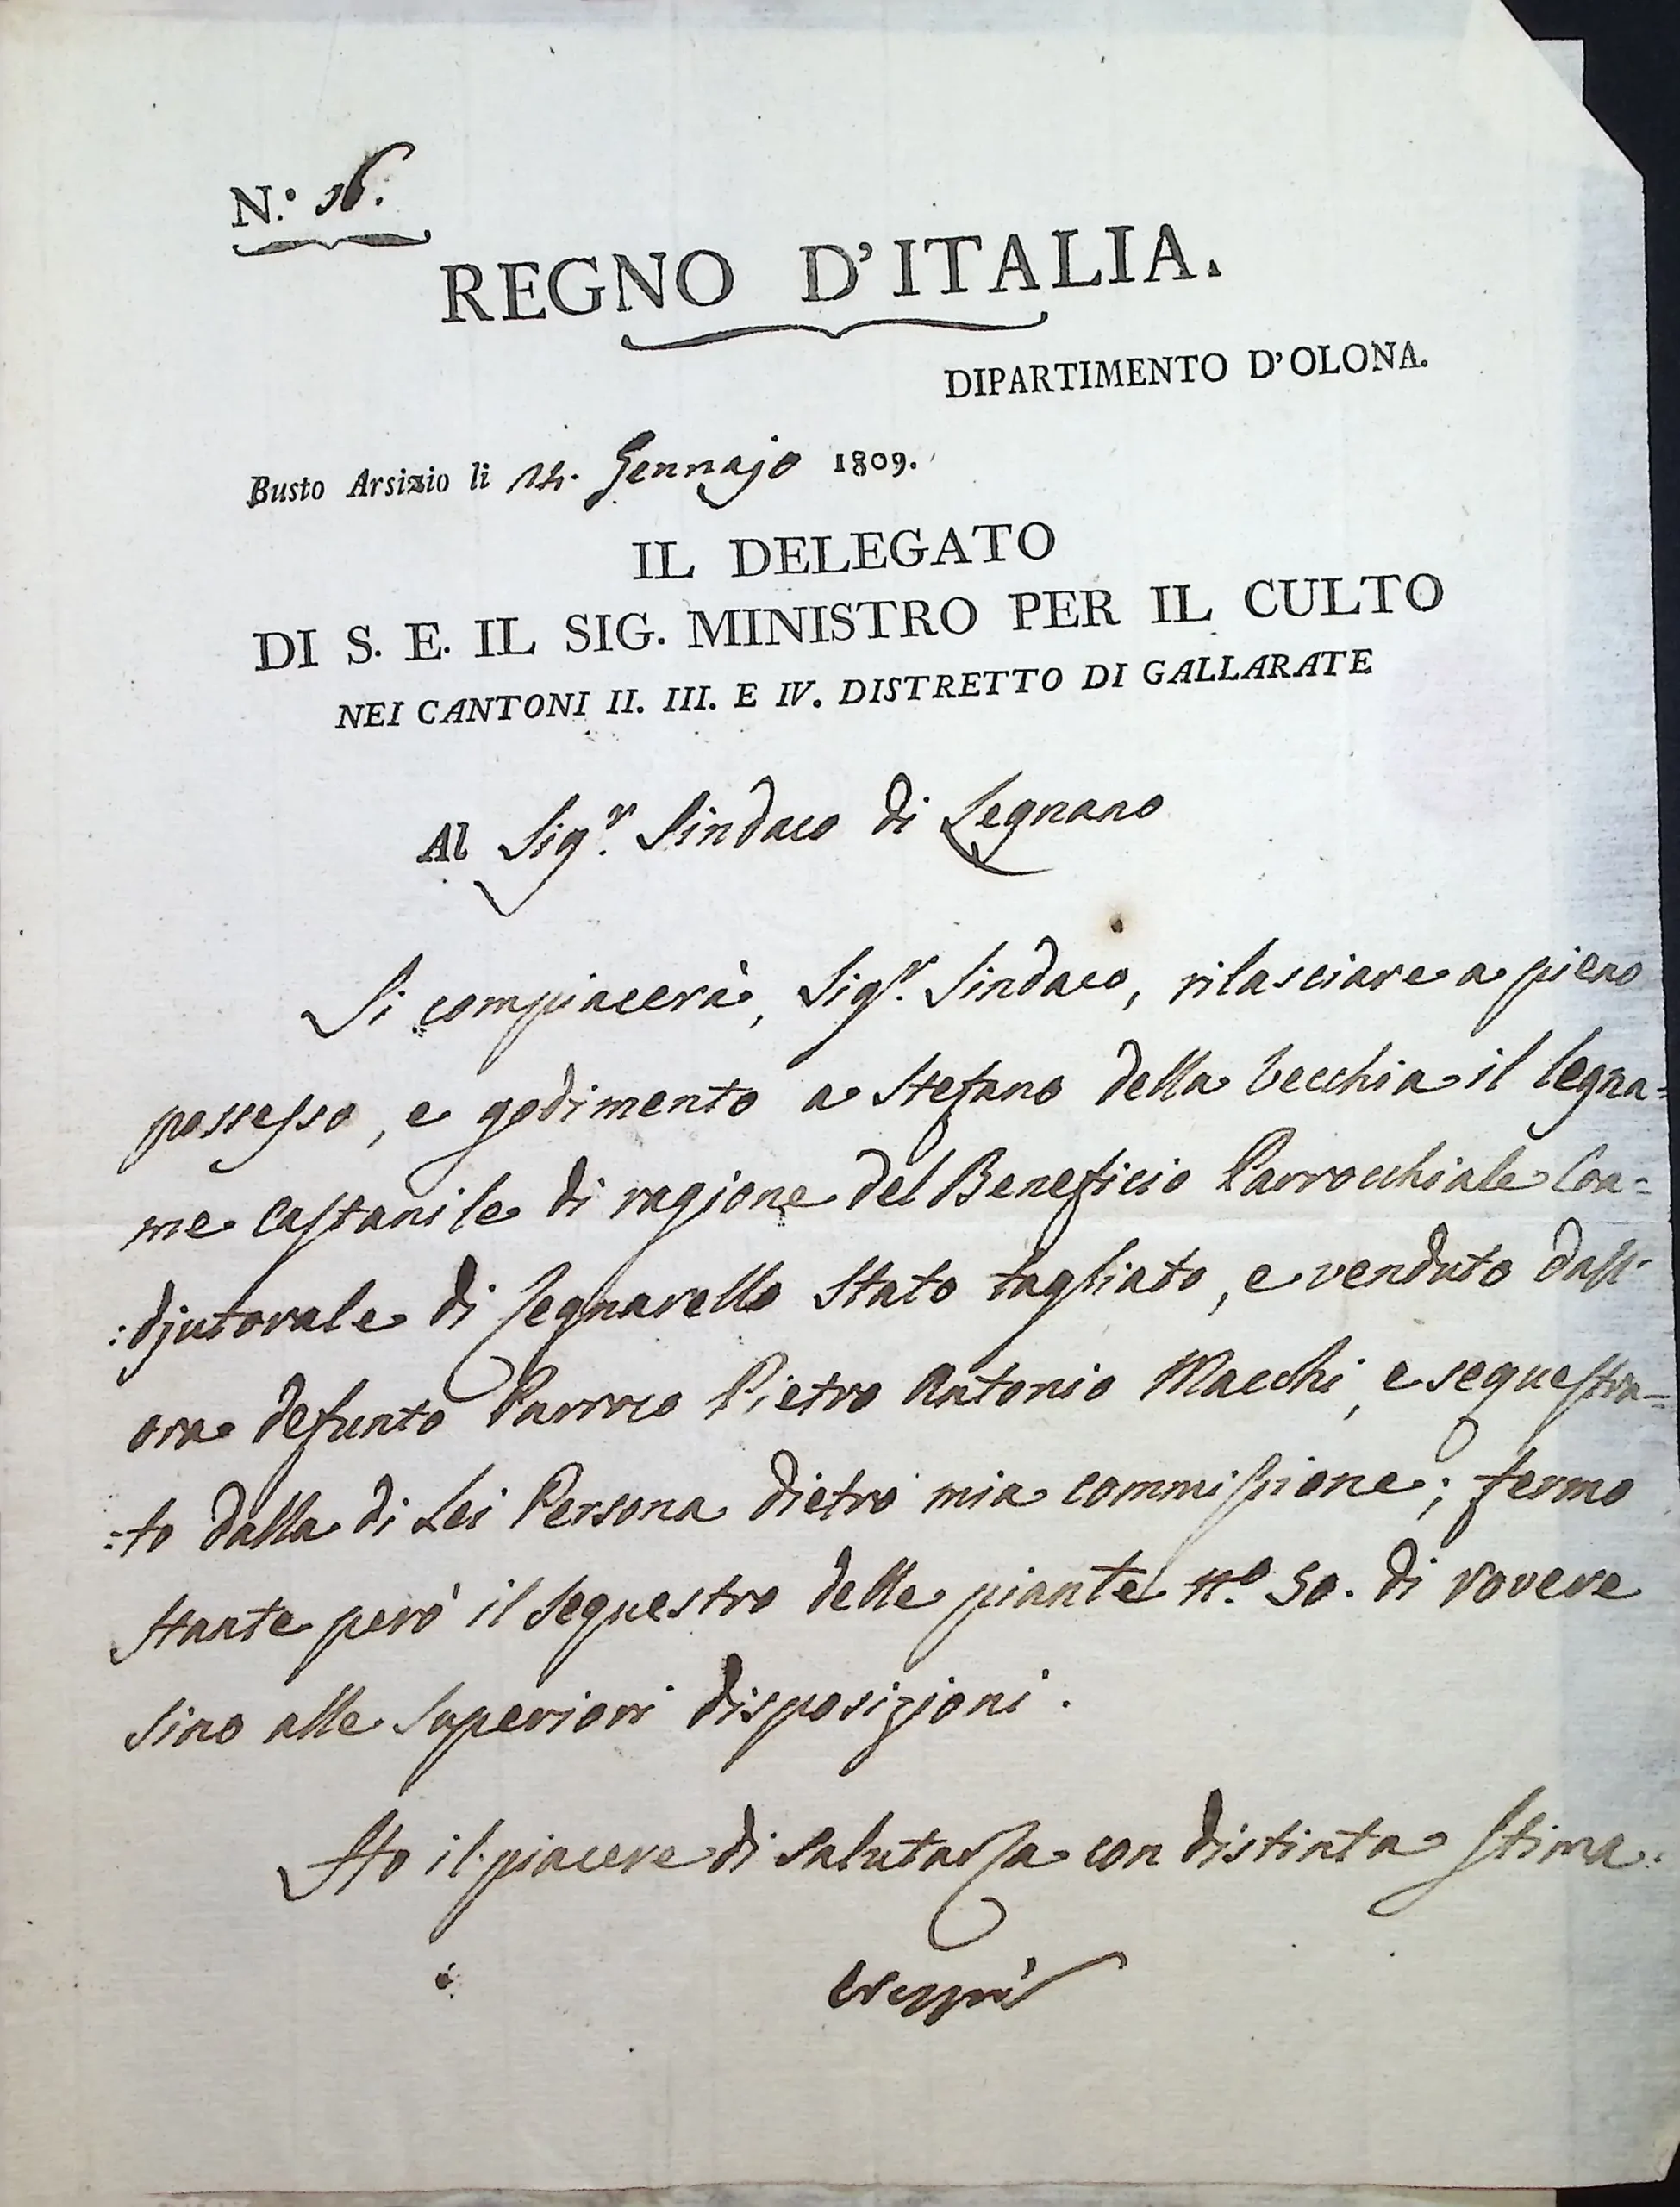 N.º 16.
REGNO D'ITALIA.
DIPARTIMENTO D'OLONA.
Busto Arsizio li 14. Gennajo 1809.
IL DELEGATO
DI S. E. IL SIG. MINISTRO PER IL CULTO
NEI CANTONI II. III. E IV. DISTRETTO DI GALLARATE
Al Sigr. Sindaco di Legnano
Si compiacerà, Sigr. Sindaco, rilasciare a pieno
possesso, e godimento a Stefano della Vecchia il legna=
me castanile di ragione del Beneficio Parrocchiale Coa=
:djutorale di Legnarello stato tagliato, e venduto dall'
ora defunto Parroco Pietro Antonio Macchi, e sequestra=
:to dalla di Lei Persona dietro mia commissione; fermo
stante però il sequestro delle piante nº. 50. di rovere
sino alle Superiori disposizioni.
Ho il piacere di salutarla con distinta stima.
Crespi